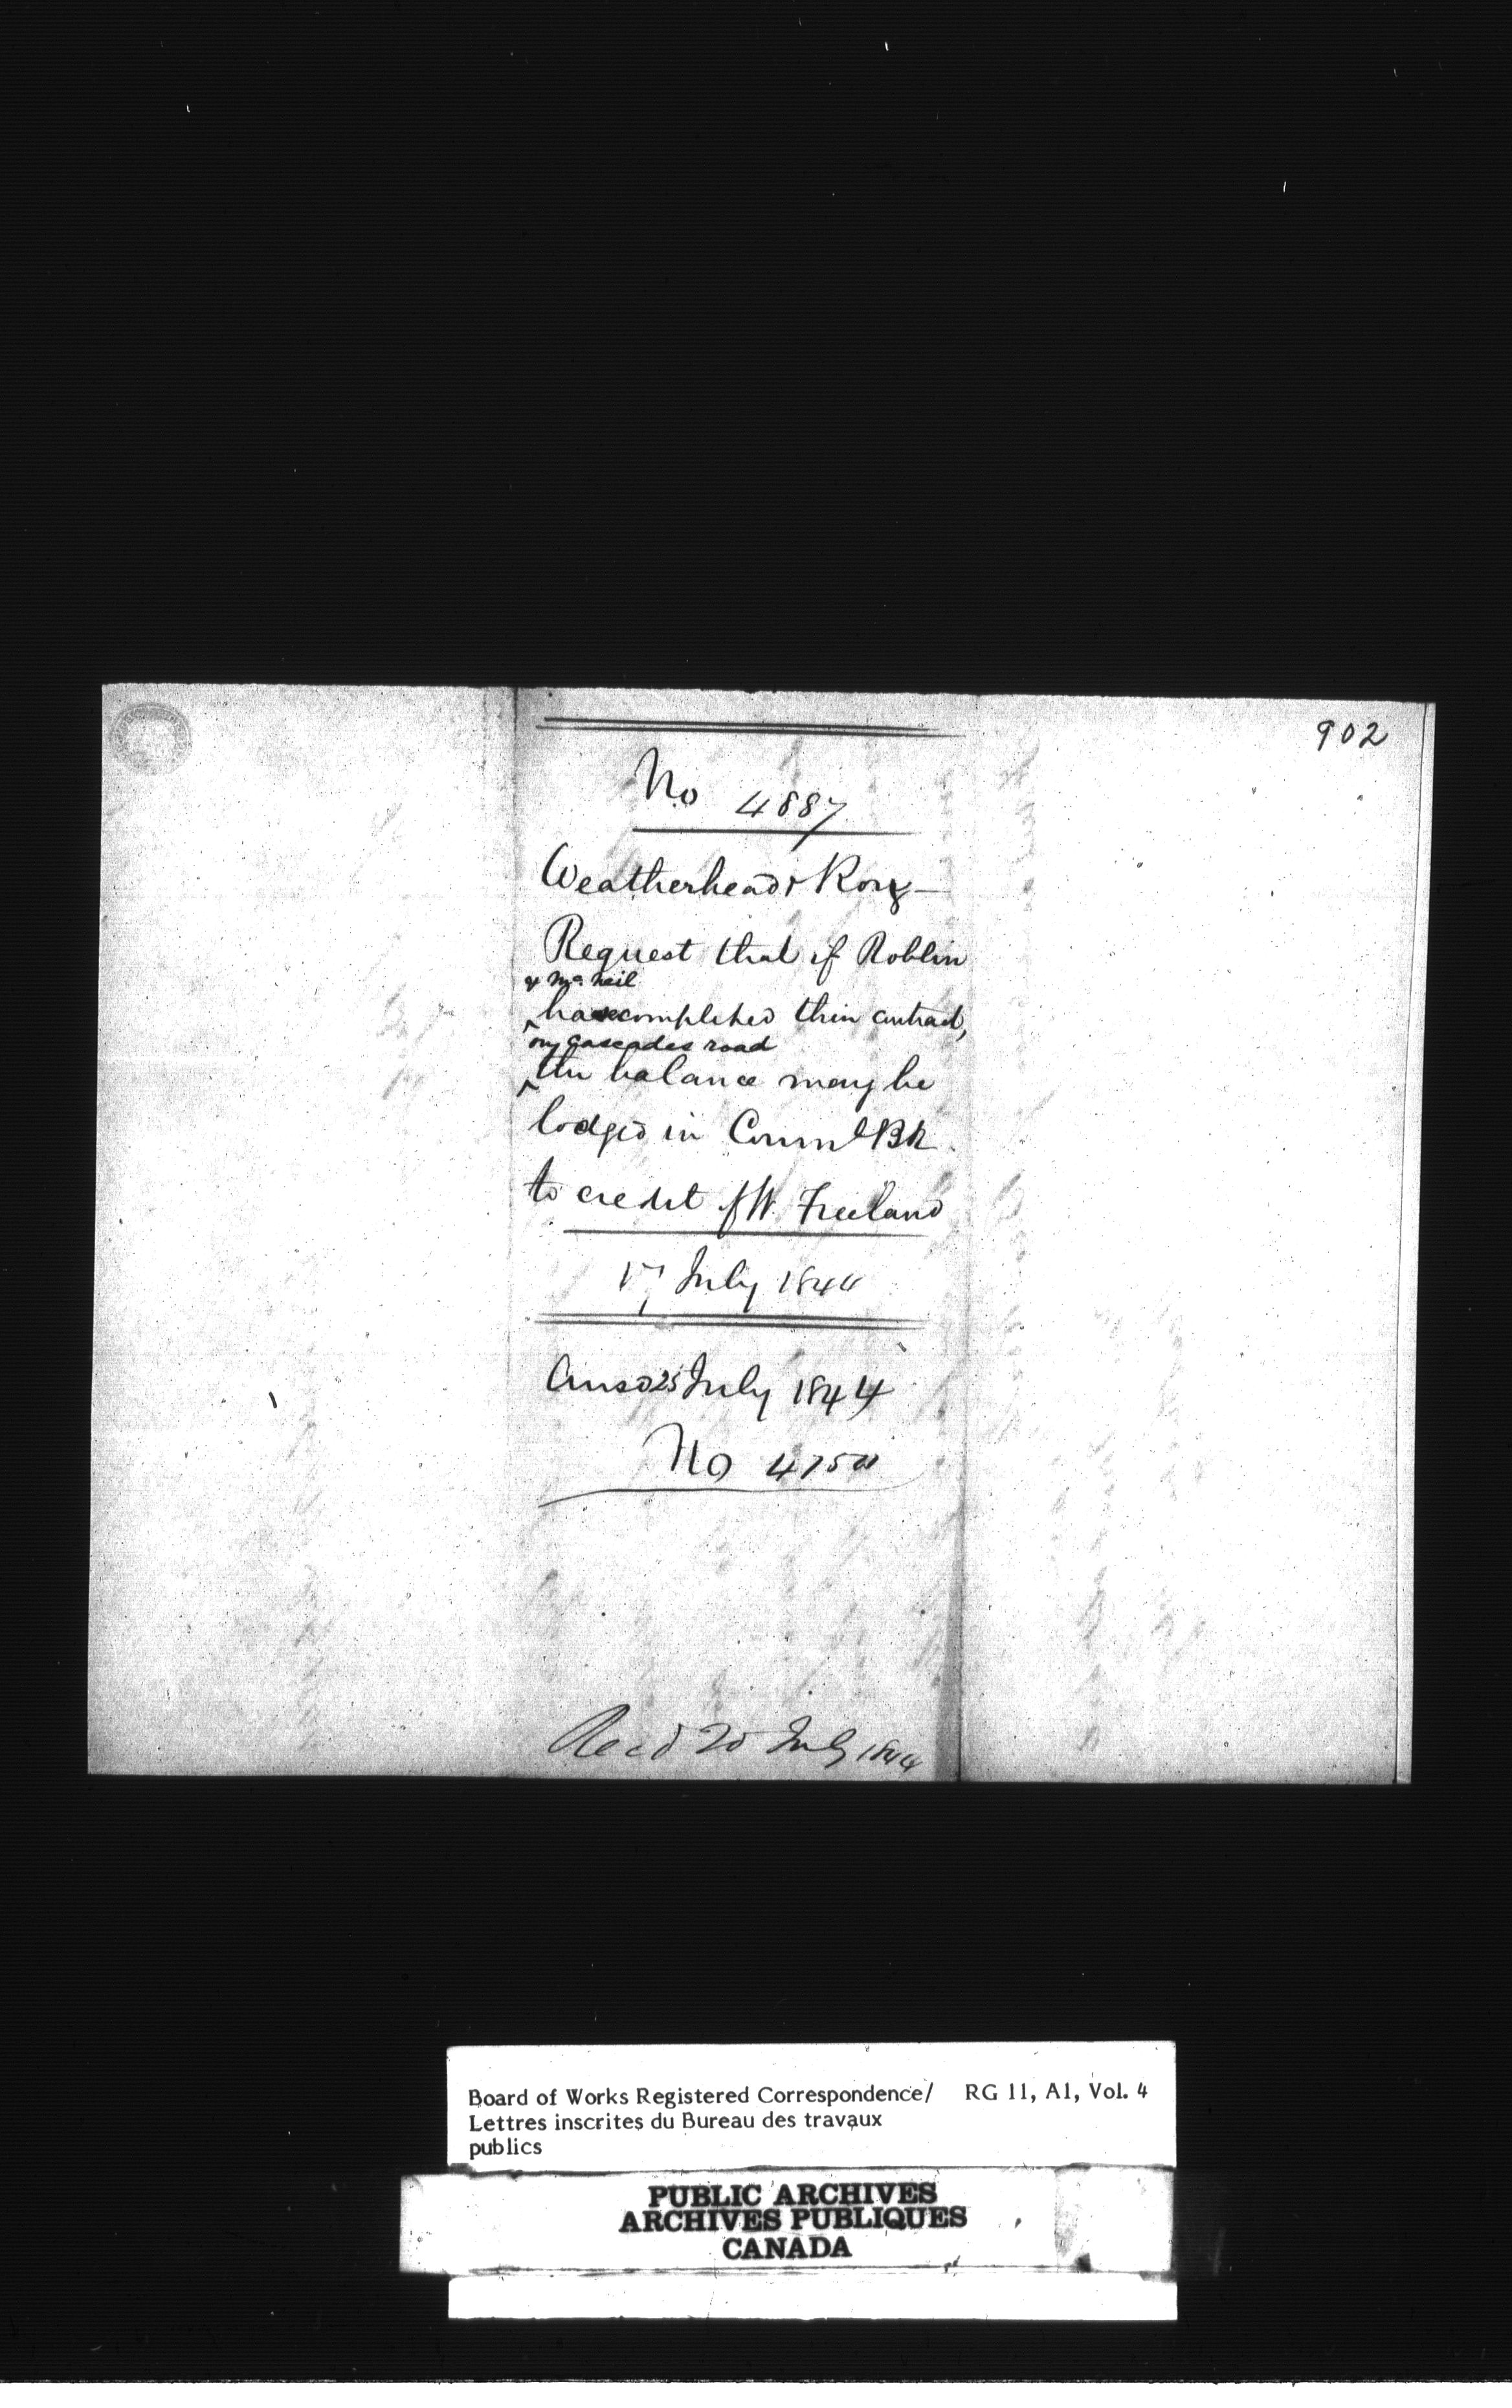 902
No 4887
Weatherhead &
Request that if Roblin
& Mc Neil
have completed their contract,
on Cascades road
the balance may be
lodged in Comml Bk
to credit of W. Freeland
17 July 1844
Ansd 25 July 1844
No
Recd 20 July 1844
Board of Works Registered Correspondence/ RG 11, A1, Vol. 4
Lettres inscrites du Bureau des travaux
publics
PUBLIC ARCHIVES
ARCHIVES PUBLIQUES
CANADA